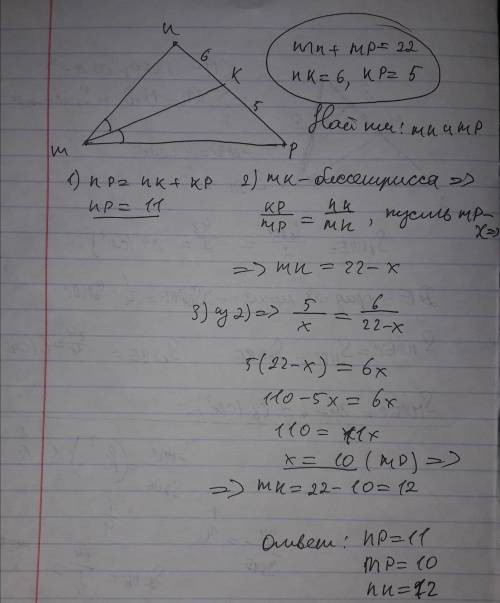 n
6
K
5
m
P
mn + mp = 22
nK = 6, KP = 5
Найти: mn и mp
1) np = nK + KP
np = 11
2) mK - биссектрисса =>
KP/mp = nK/mn, пусть mp - x =>
=> mn = 22 - x
3) из 2) => 5/x = 6/(22-x)
5(22-x) = 6x
110 - 5x = 6x
110 = 11x
x = 10 (mp) =>
=> mn = 22 - 10 = 12
Ответ: np = 11
mp = 10
nn = 12